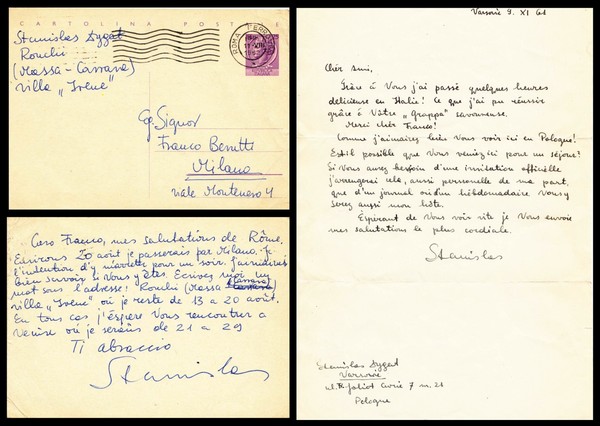 CARTOLINA POSTALE
Stanislas Dygat
Ronchi
(Massa - Carrara)
villa „Irene"
ROMA FERROVIA
Eg. Signor
Franco Berutti
Milano
viale Montenero 4
Caro Franco, mes salutations de Rôme.
Environs 20 août je passerais par Milano. Je
l'indention d'y m'arrêter pour un soir. J'aimerais
bien savoir si vous y êtes. Ecrivez moi un
mot sous l'adresse: Ronchi (Massa Carrara)
villa „Irene" où je reste de 13 a 20 août.
En tous cas j'éspère Vous rencontrer a
Venise où je serais de 21 a 29
Ti abraccio
Stanislas
Varsovie 9. XI 61
Chèr ami,
Grâce à Vous j'ai passé quelques heures
délicieuse en Italie! Ce que j'ai pu réussir
grâce à Vôtre „grappa" savoureuse.
Merci chèr Franco!
Comme j'aimerais bien Vous voir ici en Pologne!
Est-il possible que Vous veniez ici pour un séjour?
Si Vous aurez besoin d'une invitation officielle
j'arrengerai cela, aussi personelle de ma part,
que d'un journal ou d'un hebdomadaire. Vous y
serez aussi mon hôte.
Espérant de Vous voir vite je Vous envoie
mes salutations le plus cordiale.
Stanislas
Stanislas Dygat
Varsovie
ul. F. Joliot Curie 7 m. 21
Pologne